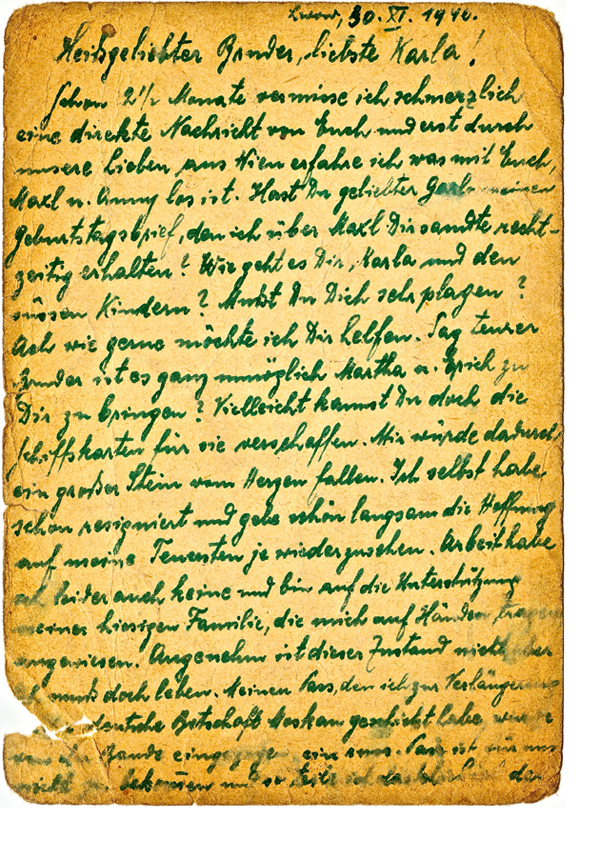 Lwow, 30. XI. 1940.
Heißgeliebter Bruder, liebste Karla!
Schon 2½ Monate vermisse ich schmerzlich
eine direkte Nachricht von Euch und erst durch
unsere Lieben aus Wien erfahre ich was mit Euch,
Maxl u. Anny los ist. Hast Du geliebter meinen
Geburtstagsbrief, den ich über Maxl Dir sandte recht-
zeitig erhalten? Wie geht es Dir, Karla und den
süssen Kindern? Mußt Du Dich sehr plagen?
Ach wie gerne möchte ich Dir helfen. Sag teurer
Bruder ist es ganz unmöglich Martha u. Erich zu
Dir zu bringen? Vielleicht kannst Du doch die
Schiffskarten für sie verschaffen. Mir würde dadurch
ein großer Stein vom Herzen fallen. Ich selbst habe
schon resigniert und gebe schön langsam die Hoffnung
auf meine Teuersten je wiederzusehen. Arbeit habe
ich leider auch keine und bin auf die Unterstützung
meiner hiesigen Familie, die mich auf Händen tragen
angewiesen. Angenehm ist dieser Zustand nicht aber
ich muß doch leben. Meinen Pass, den ich zur Verlängerung
deutsche Botschaft Moskau geschickt habe wurde
Bande ein ist für uns
nicht zu bekommen und so